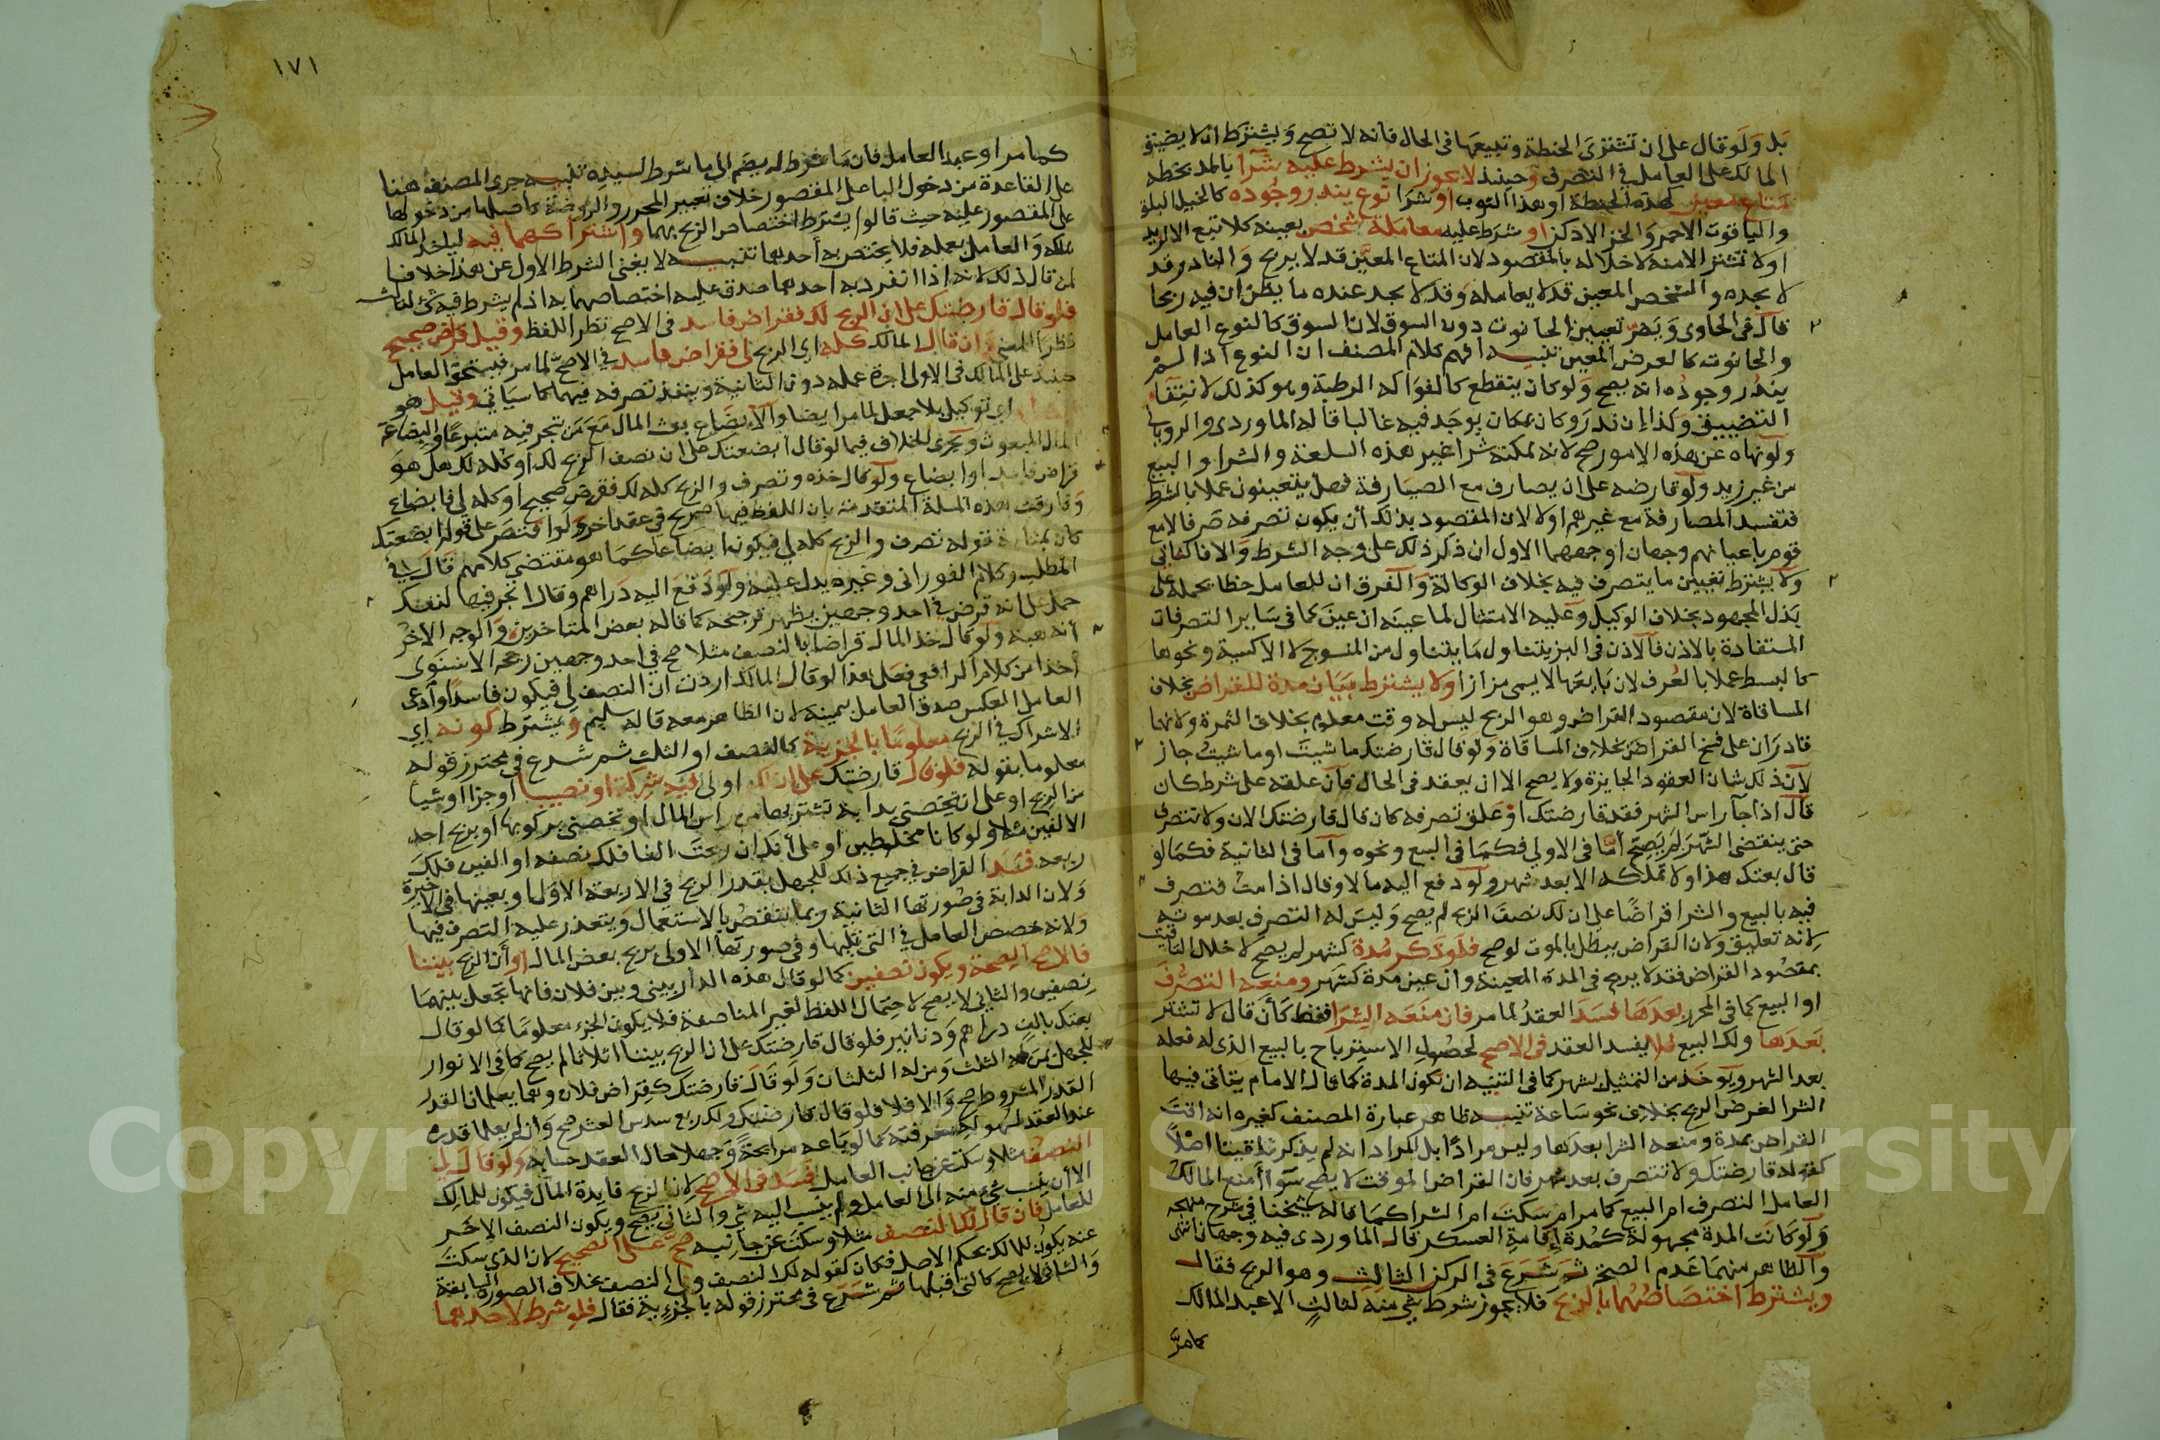 بل ولو قال على ان تشتري الحنطة وتبيعها في الحال فانه لا تصح ويشترط ان لا يضيق
المالك على العامل في التصرف وحينئذ لا يجوز ان يشترط عليه شرا بالمد بخطه
متاع معين كهذه الحنطة او هذا الثوب او شرا نوع يندر وجوده كالخيل البلق
والياقوت الاحمر والخز الادكن او شرط عليه معاملة شخص بعينه كلا تبع الا لزيد
او لا تشتر الا منه لاخلاله بالمقصود لان المتاع المعين قد لا يربح والنادر قد
لا يجده والشخص المعين قد لا يعامله وقد لا يجد عنده ما يظن ان فيه ربحا
قال في الحاوي ويضر تعيين الحانوت دون السوق لان السوق كالنوع العامل
والحانوت كالعرض المعين تنبيه افهم كلام المصنف ان النوع اذا لم
يندر وجوده انه يصح ولو كان ينقطع كالفواكه الرطبة وهو كذلك لانتفاء
التضييق وكذا ان ندر وكان بمكان يوجد فيه غالبا قاله الماوردي والروياني
ولو نهاه عن هذه الامور صح لانه يمكنه شرا غير هذه السلعة والشرا والبيع
من غير زيد ولو قارضه على ان يصارف مع الصيارفة فهل يتعينون عملا بالشرط
فتفسد المصارفة مع غيرهم او لا لان المقصود بذلك أن يكون تصرفه صرفا لا مع
قوم باعيانهم وجهان اوجههما الاول ان ذكر ذلك على وجه الشرط والا فالثاني
ولا يشترط تعيين ما يتصرف فيه بخلاف الوكالة والفرق ان للعامل حظا يحمله على
بذل المجهود بخلاف الوكيل وعليه الامتثال لما عينه ان عين كما في ساير التصرفات
المستفادة بالاذن فالاذن في البز يتناول ما يتناول من المنسوج لا الاكسية ونحوها
كالبسط عملا بالعرف لان بايعها لا يسمى بزازا ولا يشترط بيان مدة للقراض بخلاف
المساقاة لان مقصود القراض وهو الربح ليس له وقت معلوم بخلاف الثمرة ولانهما
قادران على فسخ القراض بخلاف المساقاة ولو قال قارضتك ما شيت او ما شيت جاز
لان ذلك شان العقود الجايزة ولا يصح الا ان يعقد في الحال فان علقه على شرط كان
قال اذا جآ راس الشهر فقد قارضتك او علق تصرفه كان قال قارضتك الان ولا تتصرف
حتى ينقضي الشهر لم يصح أما في الاولى فكما في البيع ونحوه وآما في الثانية فكما لو
قال بعتك هذا ولا تملكه الا بعد شهر ولو دفع اليه مالا وقال اذا مت فتصرف
فيه بالبيع والشرا قراضا على ان لك نصف الربح لم يصح وليس له التصرف بعد موته
لانه تعليق ولان القراض يبطل بالموت لو صح فلو ذكر مدة كشهر لم يصح لاخلال التاقيت
بمقصود القراض فقد لا يربح في المدة المعينة وان عين مدة كشهر ومنعه التصرف
او البيع كما في المحرر بعدها فسد العقد لما مر فان منعه الشرا فقط كأن قال لا تشتر
بعدها ولك البيع فلا يفسد العقد في الاصح لحصول الاسترباح بالبيع الذي له فعله
بعد الشهر ويوخذ من التمثيل بشهر كما في التنبيه ان تكون المدة كما قال الامام يتاتى فيها
الشرا لغرض الربح بخلاف نحو ساعة تنبيه ظاهر عبارة المصنف كغيره انه اقت
القراض بمدة ومنعه الشرا بعدها وليس مرادا بل المراد انه لم يذكر تاقيتا اصلا
كقوله قارضتك ولا تتصرف بعد شهر فان القراض الموقت لا يصح سوآ أمنع المالك
العامل التصرف ام البيع كما مر ام سكت ام الشرا كما قاله شيخنا في شرح منهجه
ولو كانت المدة مجهولة كمدة اقامة العسكر قال الماوردي فيه وجهان انتهى
والظاهر منهما عدم الصحة ثم شرع في الركن الثالث وهو الربح فقال
ويشترط اختصاصهما بالربح فلا يجوز شرط شي منه لثالث الا عبد المالك
كما مر
١٧١
كما مر او عبد العامل فان ما شرط له يضم الى ما شرط لسيده تنبيه جرى المصنف هنا
على القاعدة من دخول الباء على المقصور خلاف تعبير المحرر والروضة واصلها من دخولها
على المقصور عليه حيث قالوا يشترط اختصاص الربح بهما واشتراكهما فيه لياخذ المالك
بملكه والعامل بعمله فلا يختص به أحدهما تنبيه لا يغني الشرط الاول عن هذا خلافا
لمن قال ذلك لانه اذا انفرد به احدهما صدق عليه اختصاصهما به اذ لم يشرط فيه شي لثالث
فلو قال قارضتك على ان الربح لك فقراض فاسد في الاصح نظرا للفظ وقيل قراض صحيح
نظرا للمعنى وان قال المالك كله اي الربح لي فقراض فاسد في الاصح لما مر فيستحق العامل
حينئذ على المالك في الاولى اجرة عمله دون الثانية وينفذ تصرفه فيهما كما سياتي وقيل هو
اي توكيل بلا جعل لما مر ايضا والابضاع بعث المال مع من يتجر فيه متبرعا والبضاعة
المال المبعوث ويجري الخلاف فيما لو قال ابضعتك على ان نصف الربح لك او كله لك هل هو
قراض فاسد او ابضاع ولو قال خذه وتصرف والربح كله لك فقرض صحيح او كله لي فابضاع
وفارقت هذه المسلة المتقدمة بان اللفظ فيها صريح في عقد اخر ولو اقتصر على قوله ابضعتك
كان بمثابة قوله تصرف والربح كله لي فيكون ابضاعا كما هو مقتضى كلامهم قال في
المطلب وكلام الفوراني وغيره يدل عليه ولو دفع اليه دراهم وقال اتجر فيها لنفسك
حمل على انه قرض في احد وجهين يظهر ترجيحه كما قاله بعض المتاخرين والوجه الاخر
أنه هبة ولو قال خذ المال قراضا بالنصف مثلا صح في احد وجهين رجحه الاسنوي
أخذا من كلام الرافعي فعلى هذا لو قال المالك اردت ان النصف لي فيكون فاسدا وادعى
العامل العكس صدق العامل بيمينه لان الظاهر معه قاله سليم ويشترط كونه اي
الاشراك في الربح معلوما بالجزية كالنصف او الثلث ثم شرع في محترز قوله
معلوما بقوله فلو قال قارضتك على ان لك او لي فيه شركة او نصيبا او جزا او شيأ
من الربح او على ان تختصني بدابة تشتريها من راس المال او تخصني بركوبها او بربح احد
الالفين مثلا ولو كانا مخلوطين او على أنك ان ربحت الفا فلك نصفه او الفين فلك
ربعه فسد القراض في جميع ذلك للجهل بقدر الربح في الاربعة الاول او بعينها في الاخيرة
ولان الدابة في صورتها الثانية ربما تنقص بالاستعمال ويتعذر عليه التصرف فيها
ولانه خصص العامل في التي تليها وفي صورتها الاولى بربح بعض المال او أن الربح بيننا
فالاصح الصحة ويكون نصفين كما لو قال هذه الدار بيني وبين فلان فانها تجعل بينهما
نصفين والثاني لا يصح لاحتمال اللفظ لغير المناصفة فلا يكون الجزء معلوما كما لو قال
بعتك بالف دراهم ودنانير فلو قال قارضتك على ان الربح بيننا اثلاثا لم يصح كما في الانوار
للجهل بمن له الثلث ومن له الثلثان ولو قال قارضتك كقراض فلان وهما يعلمان القدر
القدر المشروط صح والا فلا ولو قال قارضتك ولك ربع سدس العشر صح وان لم يعلما قدره
عند العقد لسهولة معرفته كما لو باعه مرابحة وجهلا حال العقد حسابه ولو قال لي
النصف مثلا وسكت عن جانب العامل فسد في الاصح لان الربح فايدة المال فيكون للمالك
الا أن ينسب شي منه الى العامل ولم ينسب اليه شي والثاني يصح ويكون النصف الاخر
للعامل فان قال لك النصف مثلا وسكت عن جانبه صح على الصحيح لان الذي سكت
عنه يكون للمالك بحكم الاصل فكان كقوله لك النصف ولي النصف بخلاف الصورة السابقة
والثاني لا يصح كالتي قبلها ثم شرع في محترز قوله بالجزئية فقال فلو شرط لاحدهما